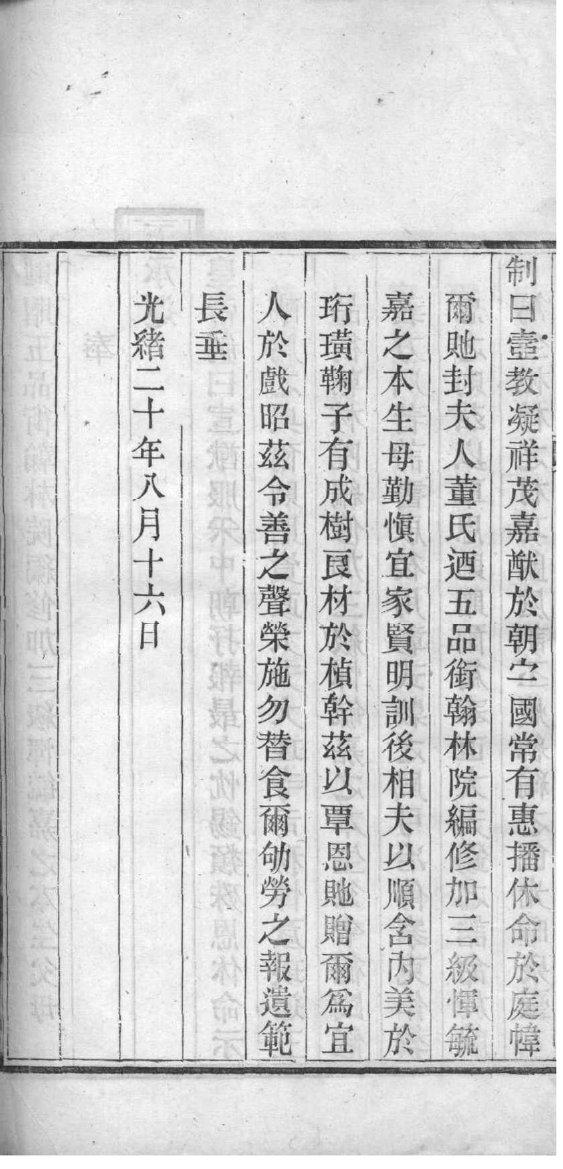 制曰壼教凝祥茂嘉猷於朝宁國常有惠播休命於庭幃
爾貤封夫人董氏迺五品銜翰林院編修加三級惲毓
嘉之本生母勤愼宜家賢明訓後相夫以順含內美於
珩璜鞠子有成樹良材於楨幹茲以覃恩貤贈爾爲宜
人於戲昭茲令善之聲榮施勿替食爾劬勞之報遺範
長垂
光緒二十年八月十六日